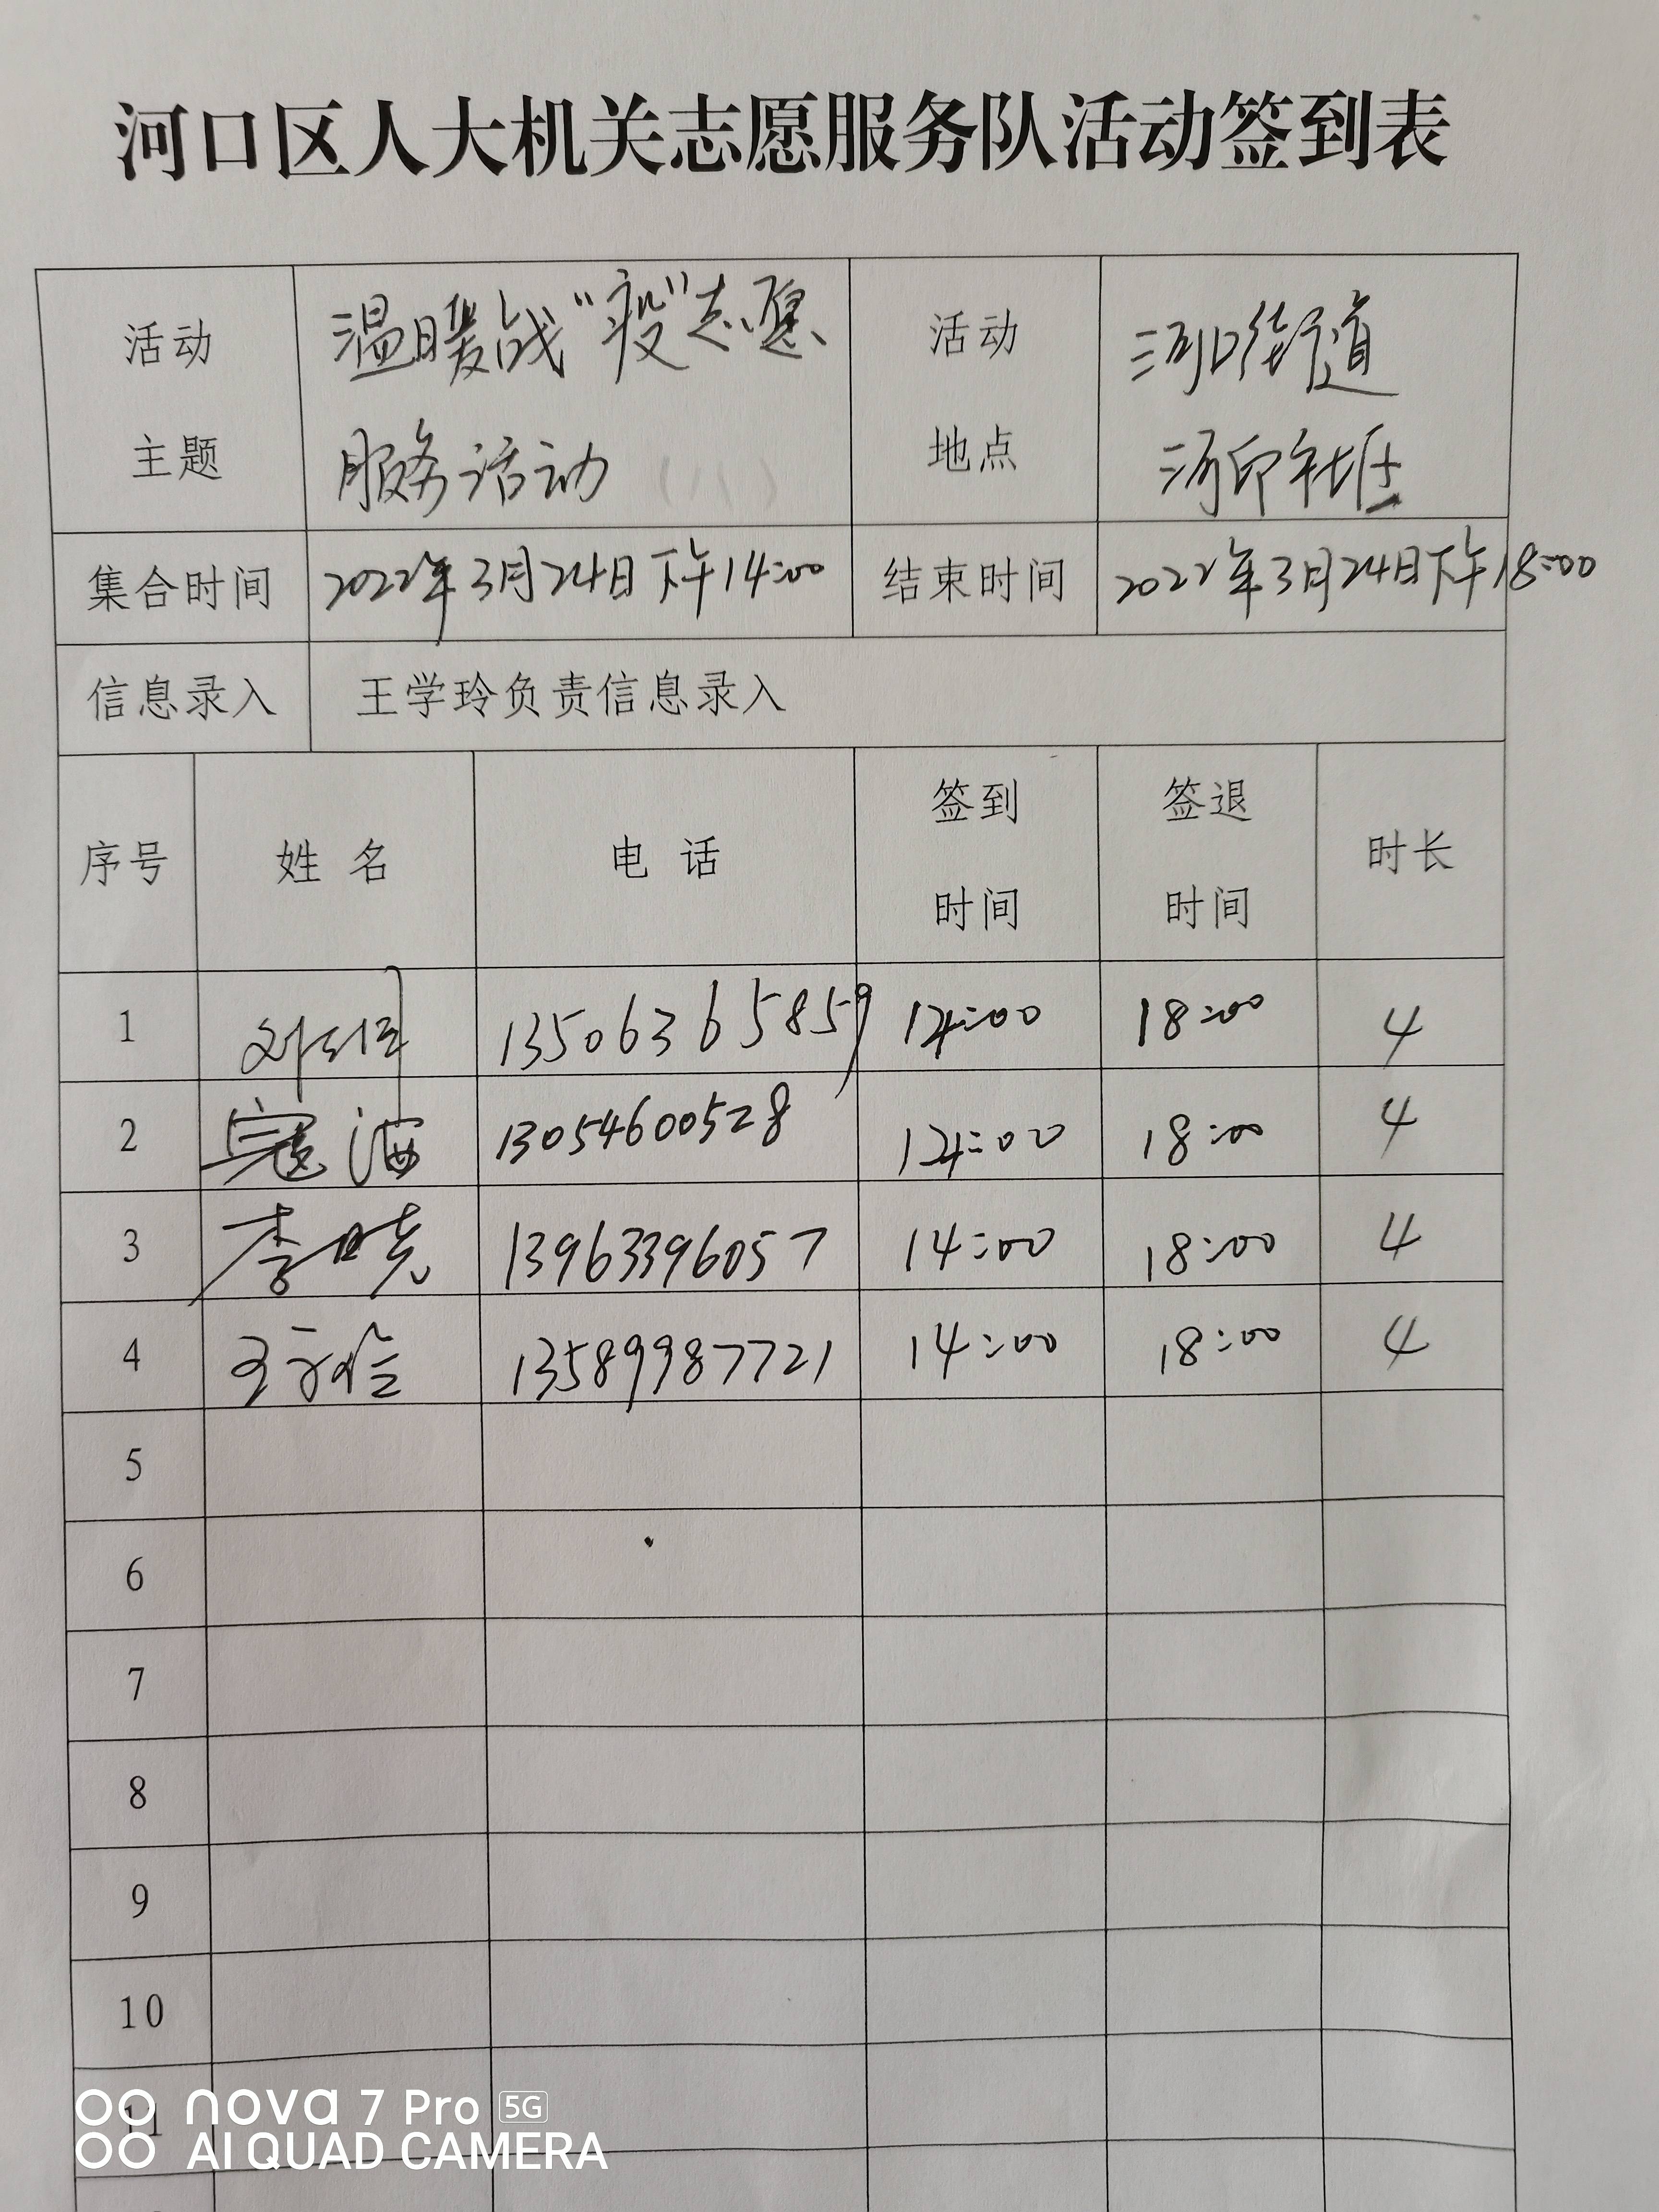 河口区人大机关志愿服务队活动签到表
活动 主题 温暖战“疫”志愿 服务活动 活动 地点 河口街道 河印社区
集合时间 2022年3月24日下午14:00 结束时间 2022年3月24日下午18:00
信息录入 王学玲负责信息录入
序号 姓名 电话 签到 时间 签退 时间 时长
1 13506365859 14:00 18:00 4
2 寇海 13054600528 14:00 18:00 4
3 李晓 13963396057 14:00 18:00 4
4 13589987721 14:00 18:00 4
5
6
7
8
9
10
11
nova 7 Pro 5G
AI QUAD CAMERA